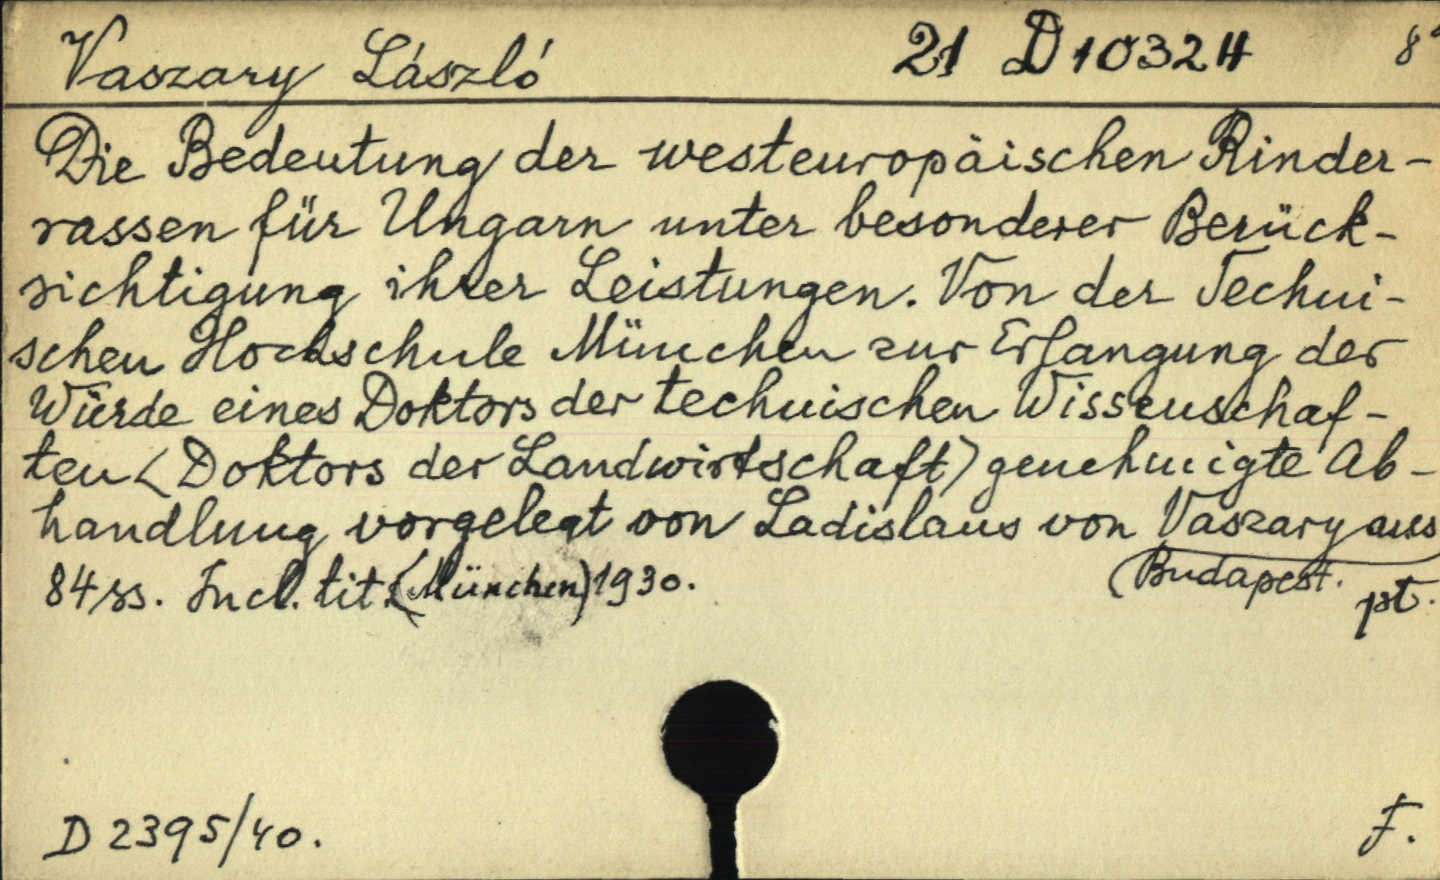 Vaszary László 21 D 10324 8°
Die Bedeutung der westeuropäischen Rinder-
rassen für Ungarn unter besonderer Berück-
sichtigung ihrer Leistungen. Von der Techni-
schen Hochschule München zur Erlangung der
Würde eines Doktors der technischen Wissenschaf-
ten <Doktors der Landwirtschaft> genehmigte Ab-
handlung vorgelegt von Ladislaus von Vaszary aus
84 ss. Incl. tit. (München) 1930. (Budapest. pst.
D 2395/40. F.